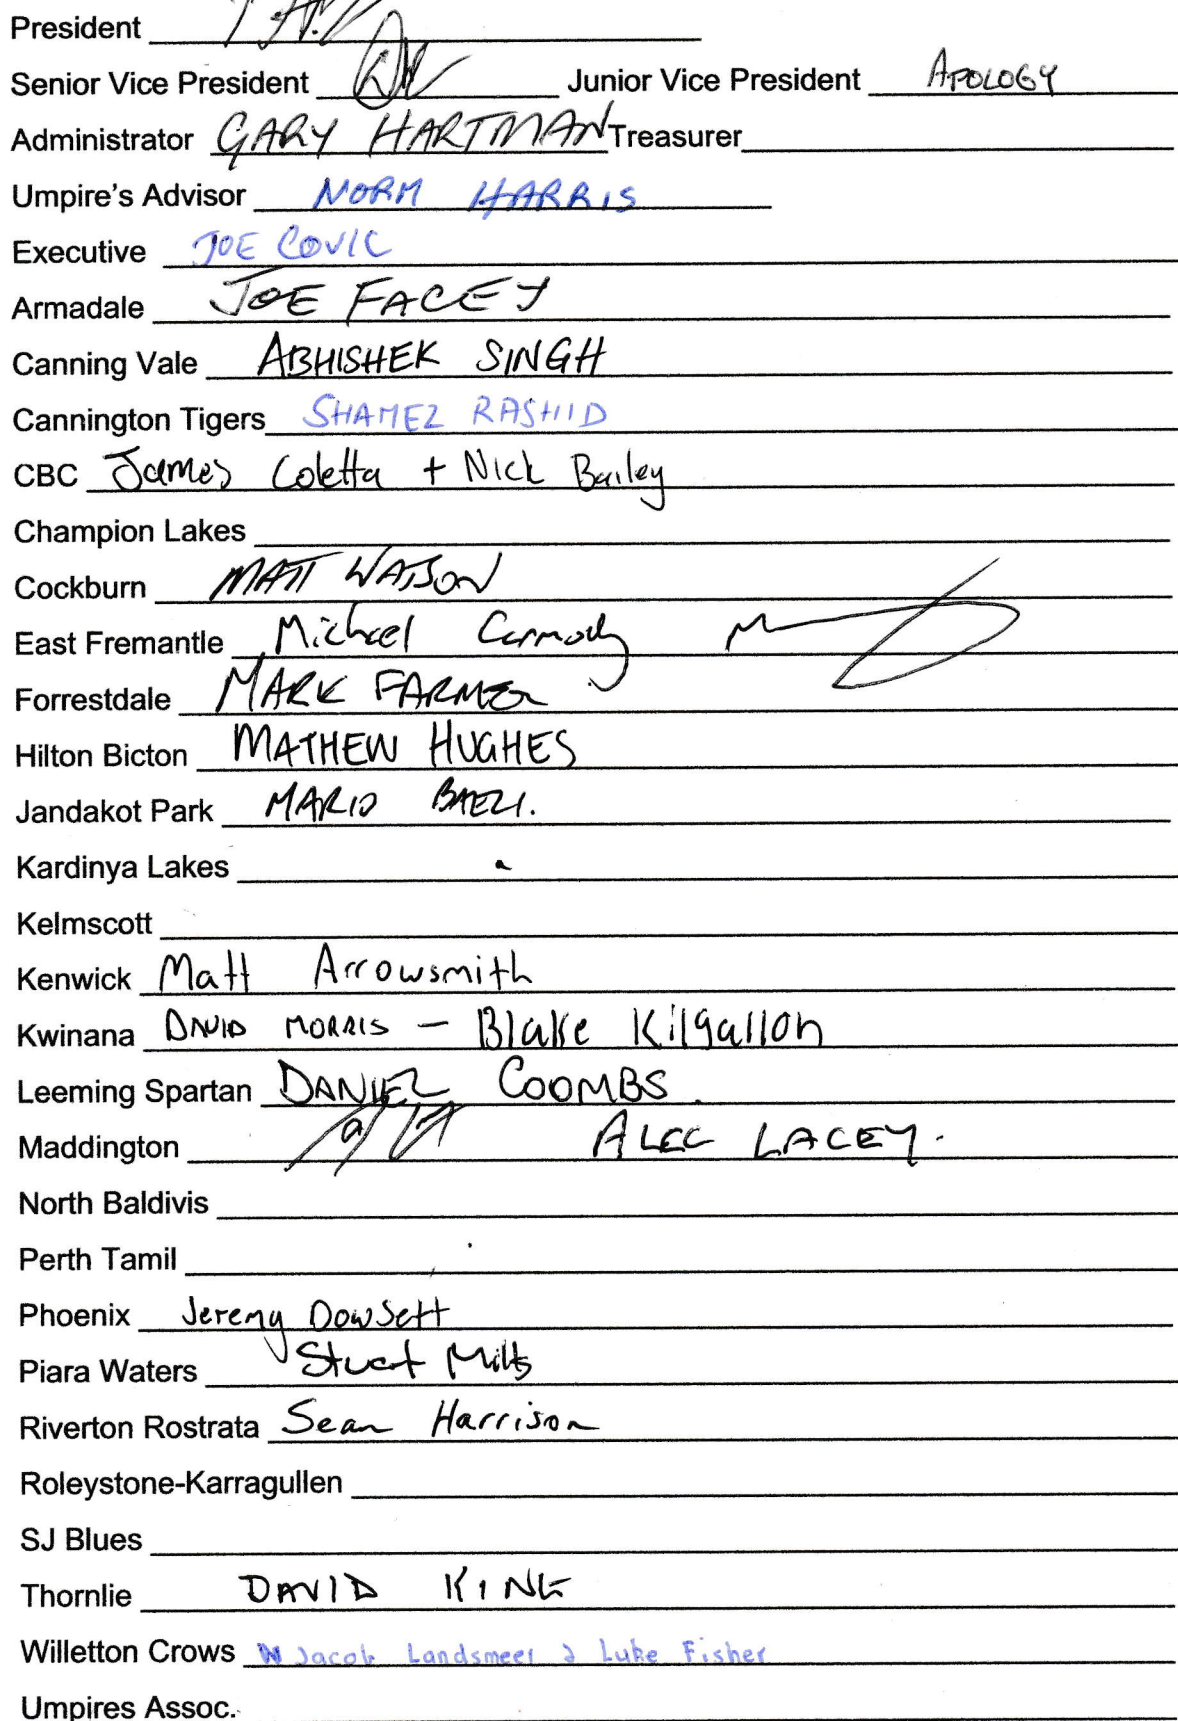 President
Senior Vice President Junior Vice President APOLOGY
Administrator GARY HARTMAN Treasurer
Umpire's Advisor NORM HARRIS
Executive JOE COVIC
Armadale JOE FACEY
Canning Vale ABHISHEK SINGH
Cannington Tigers SHAMEZ RASHID
CBC James Coletta + Nick Bailey
Champion Lakes
Cockburn MATT WATSON
East Fremantle Michael Carmody
Forrestdale MARK FARMER
Hilton Bicton MATHEW HUGHES
Jandakot Park MARIO
Kardinya Lakes
Kelmscott
Kenwick Matt Arrowsmith
Kwinana DAVID MORRIS - Blake Kilgallon
Leeming Spartan DANIEL COOMBS.
Maddington ALEC LACEY.
North Baldivis
Perth Tamil
Phoenix Jeremy Dowsett
Piara Waters Stuart
Riverton Rostrata Sean Harrison
Roleystone-Karragullen
SJ Blues
Thornlie DAVID KING
Willetton Crows Jacob Landsmeer & Luke Fisher
Umpires Assoc.